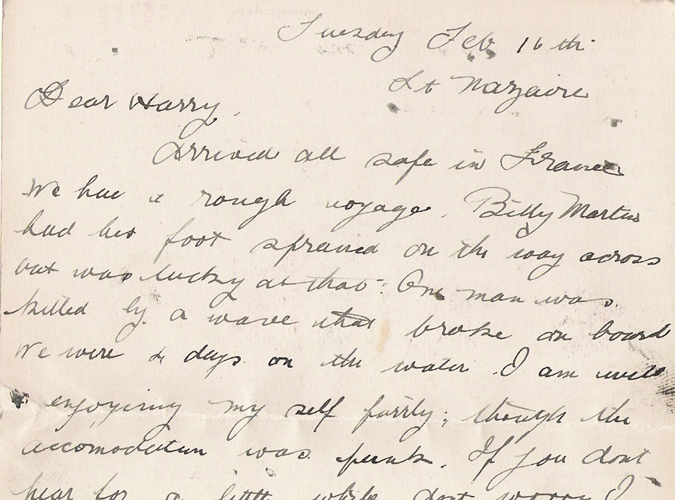 Tuesday Feb 16 th
St Nazaire
Dear Harry.
Arrived all safe in France
We had a rough voyage. Billy Martin
had his foot sprained on the way across
but was lucky at that. One man was
killed by a wave that broke on board
We were 4 days on the water. I am well
enjoying my self fairly; though the
accomodation was punk. If you dont
hear for a little while dont worry I